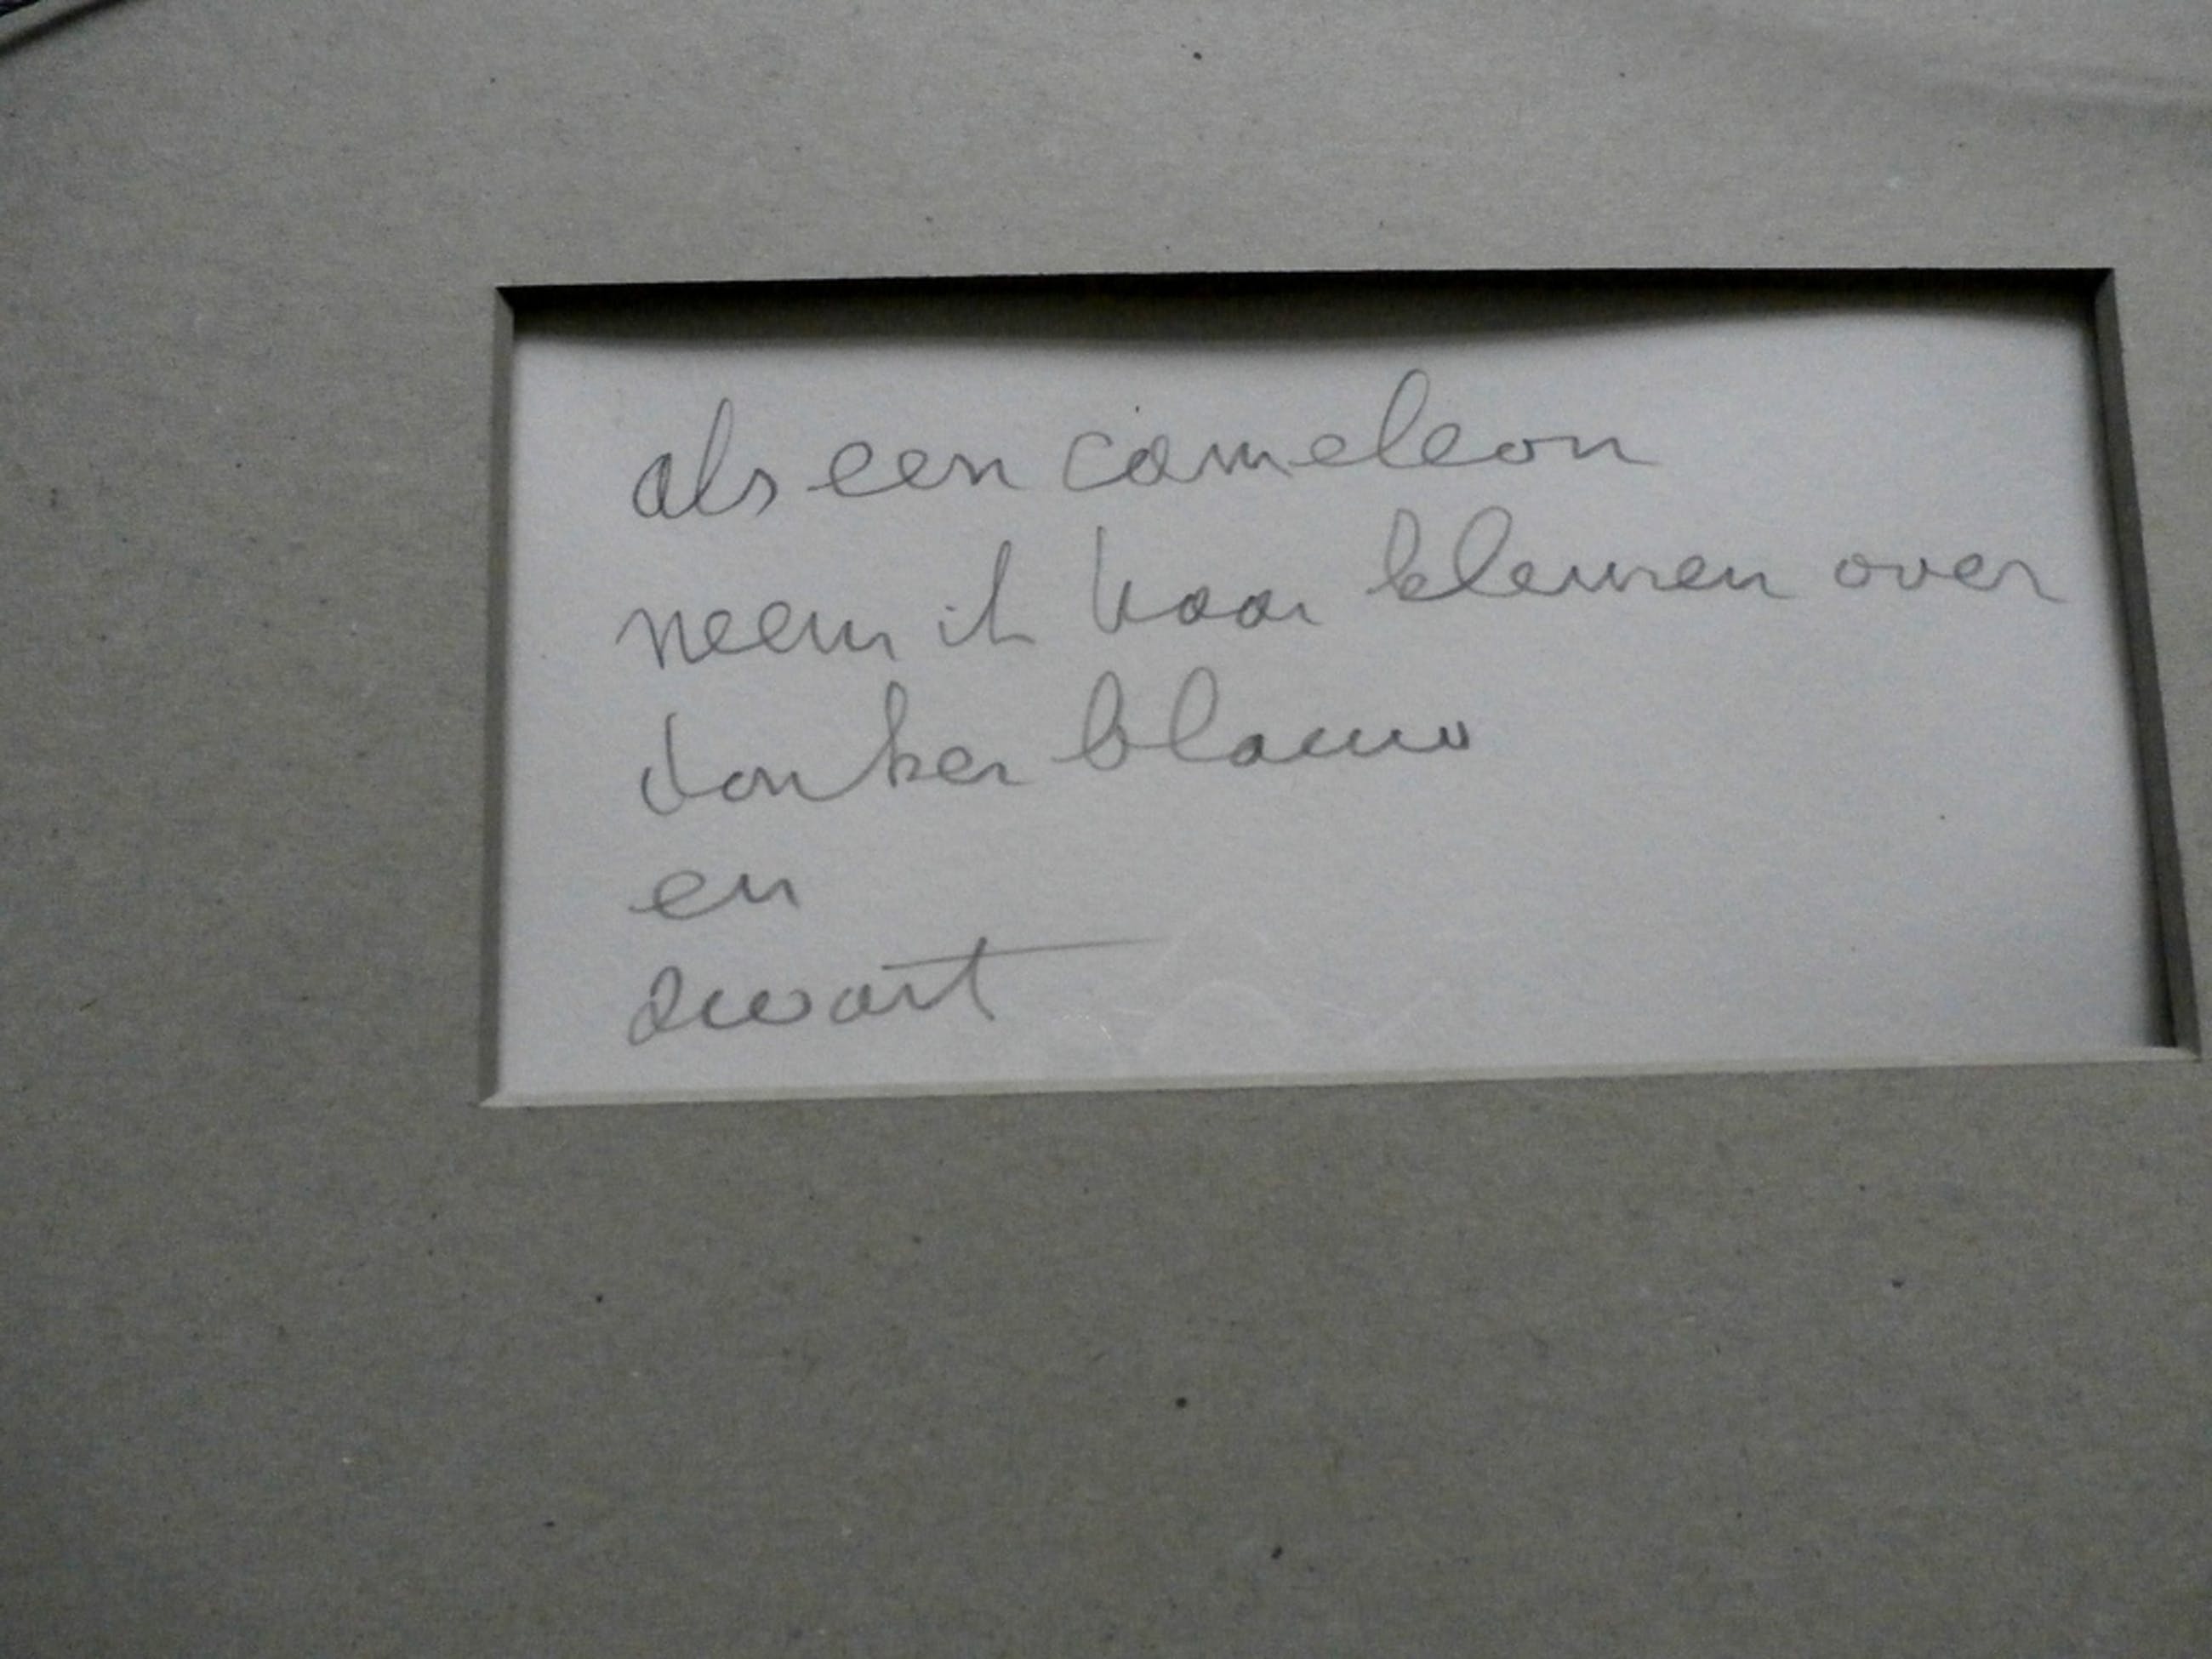 als een cameleon
neem ik haar kleuren over
donker blauw
en
zwart